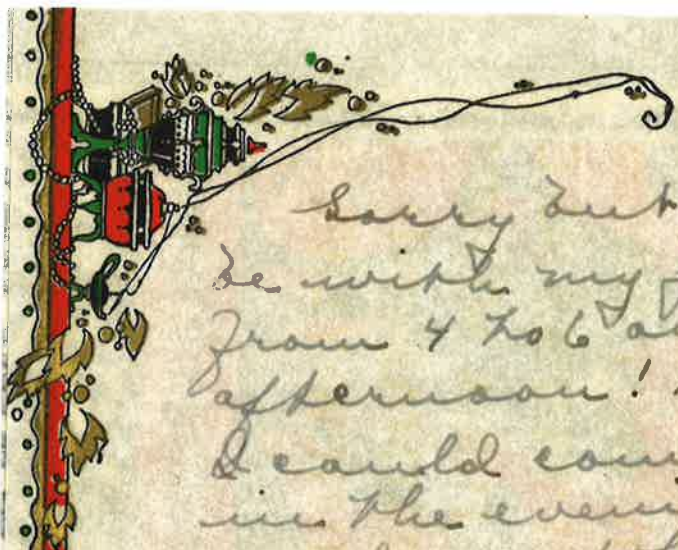 Sorry but
be with my
from 4 to 6 o
afternoon!
I could com
in the eveni